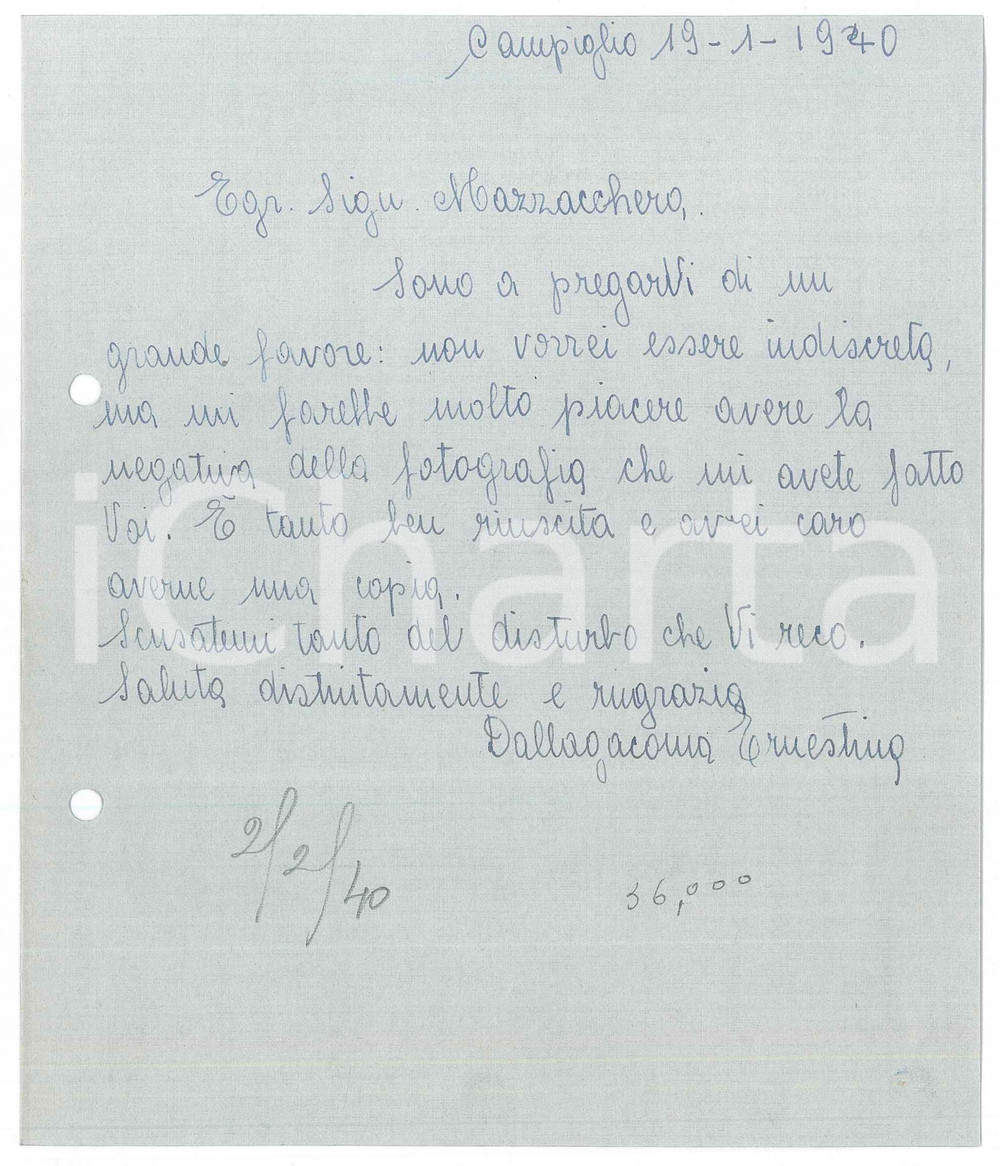 Campiglio 19-1-1940
Egr. Sign. Mazzacchera.
Sono a pregarVi di un
grande favore: non vorrei essere indiscreta,
ma mi farebbe molto piacere avere la
negativa della fotografia che mi avete fatto
Voi. È tanto ben riuscita e avrei caro
averne una copia.
Scusatemi tanto del disturbo che Vi reco.
Saluta distintamente e ringrazia
Dallagacoma Ernestina
2/2/40
36,000
iCharta